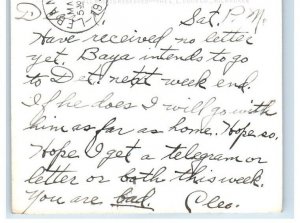 D.) Sat. P.M.
Have received no letter
yet. Baya intends to go
to Det. next week end.
If he does I will go with
him as far as home. Hope so.
Hope I get a telegram or
letter or both this week.
You are bad. Cleo.